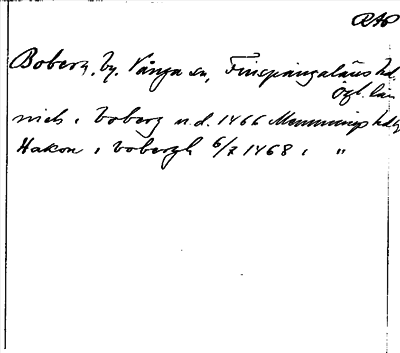 RAP
Boberg, by, Vånga sn, Finspångaläns hd,
Ögl. län
nich i boberg u.d. 1466 Memmings hdg
Hakon i bobergh 6/7 1468 i "